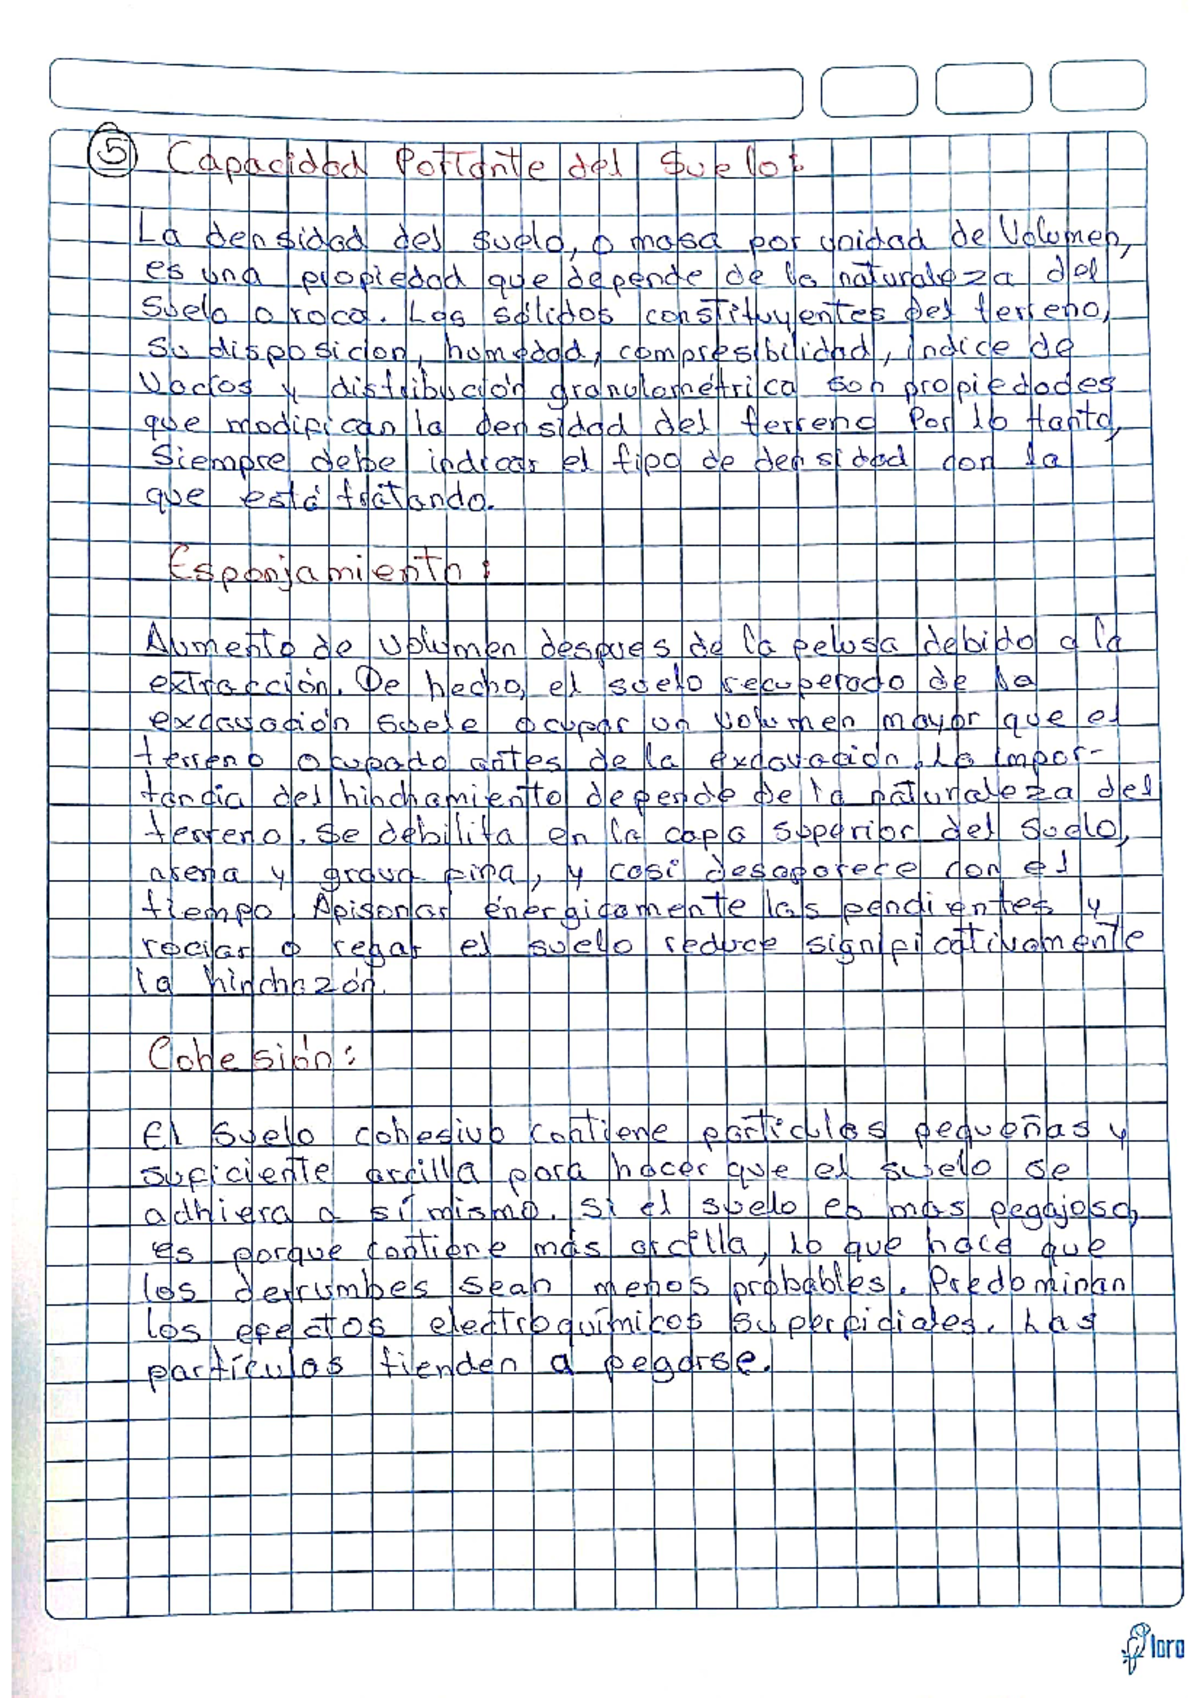 5 Capacidad Portante del Suelo:
La densidad del suelo, o masa por unidad de Volumen,
es una propiedad que depende de la naturaleza del
Suelo o roca. Los sólidos constituyentes del terreno,
su disposicion, humedad, compresibilidad, índice de
Vacíos y distribución granulométrica son propiedades
que modifican la densidad del terreno Por lo tanto,
Siempre debe indicar el tipo de densidad con la
que está tratando.
Esponjamiento:
Aumento de volumen despues de la pelusa debido a la
extracción. De hecho, el suelo recuperado de la
excavación suele ocupar un volumen mayor que el
terreno ocupado antes de la excavación. La impor-
tancia del hinchamiento depende de la naturaleza del
terreno. Se debilita en la capa superior del suelo,
arena y grava fina, y casi desaparece con el
tiempo. Apisonar énergicamente las pendientes y
rociar o regar el suelo reduce significativamente
la hinchazón.
Cohesión:
El suelo cohesivo contiene partículas pequeñas y
suficiente arcilla para hacer que el suelo se
adhiera a sí mismo. Si el suelo es más pegajoso,
es porque contiene más arcilla, lo que hace que
los derrumbes sean menos probables. Predominan
los efectos electroquímicos superficiales. Las
partículas tienden a pegarse.
loro